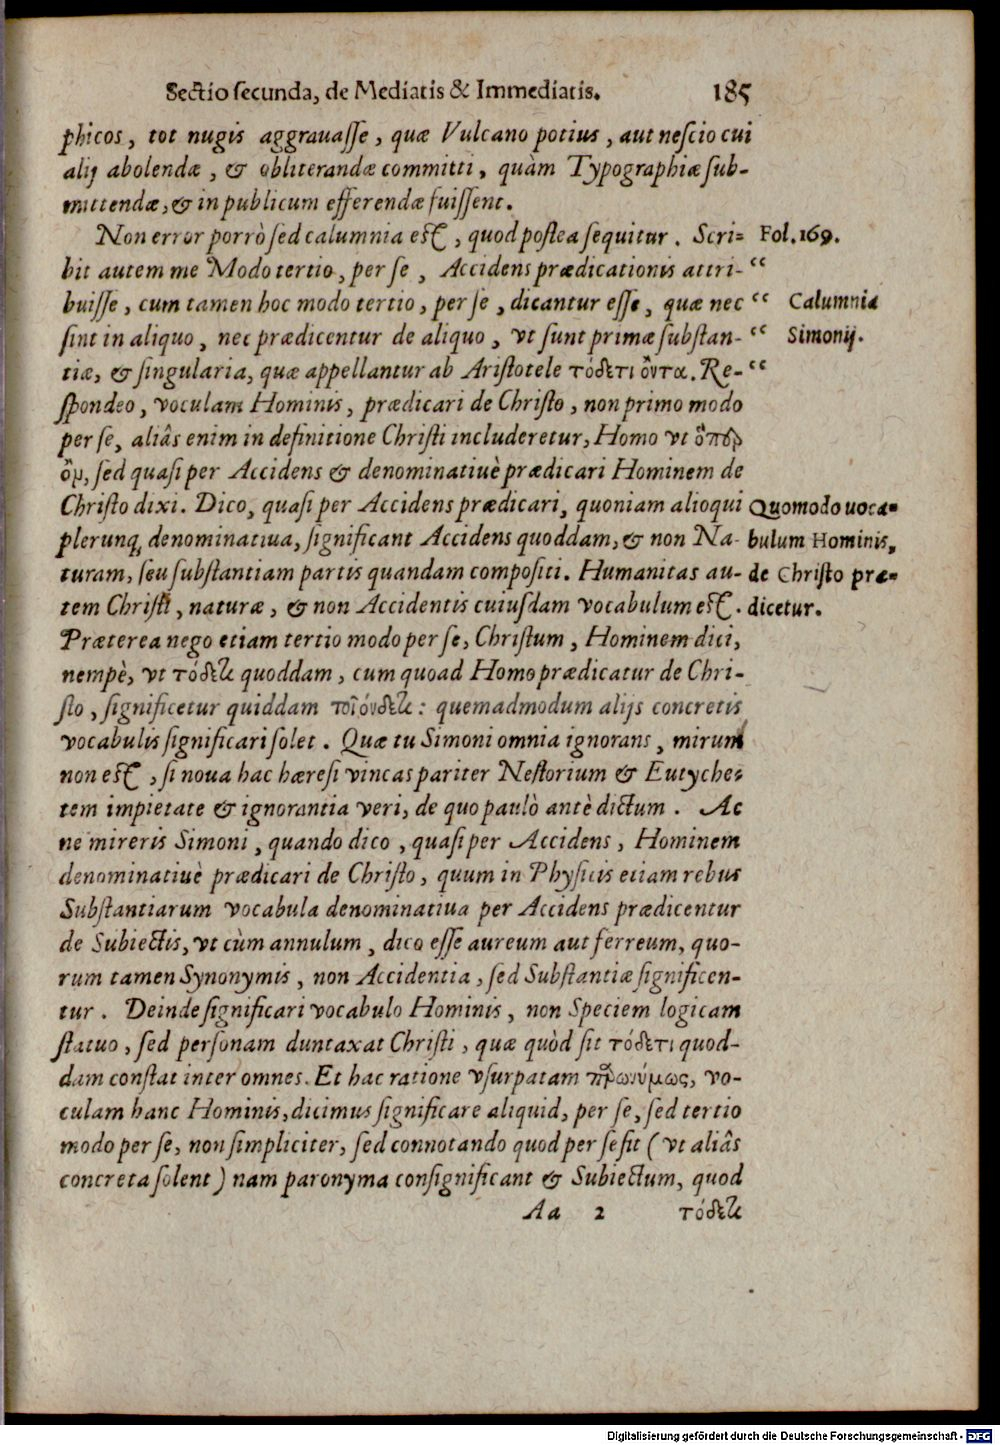 Sectio ſecunda, de Mediatis & Immediatis. 185
phicos, tot nugis aggrauaſſe, quæ Vulcano potius, aut neſcio cui
alij abolendæ, & obliterandæ committi, quàm Typographiæ ſub-
mittendæ, & in publicum efferendæ fuiſſent.
Non error porrò ſed calumnia eſt, quod poſtea ſequitur. Scri= Fol. 169.
bit autem me Modo tertio, per ſe, Accidens prædicationis attri- “
buiſſe, cum tamen hoc modo tertio, per ſe, dicantur eſſe, quæ nec “ Calumnia
ſint in aliquo, nec prædicentur de aliquo, vt ſunt primæ ſubſtan- “ Simonij.
tiæ, & ſingularia, quæ appellantur ab Ariſtotele τόδετι ὄντα. Re- “
ſpondeo, voculam Hominis, prædicari de Chriſto, non primo modo
per ſe, aliâs enim in definitione Chriſti includeretur, Homo vt ὅπερ
ὂν, ſed quaſi per Accidens & denominatiuè prædicari Hominem de
Chriſto dixi. Dico, quaſi per Accidens prædicari, quoniam alioqui Quomodo uoca=
plerunq; denominatiua, ſignificant Accidens quoddam, & non Na- bulum Hominis,
turam, ſeu ſubſtantiam partis quandam compoſiti. Humanitas au- de Chriſto præ=
tem Chriſti, naturæ, & non Accidentis cuiuſdam vocabulum eſt. dicetur.
Præterea nego etiam tertio modo per ſe, Chriſtum, Hominem dici,
nempè, vt τόδετι quoddam, cum quoad Homo prædicatur de Chri-
ſto, ſignificetur quiddam τοιόνδετι: quemadmodum alijs concretis
vocabulis ſignificari ſolet. Quæ tu Simoni omnia ignorans, mirum
non eſt, ſi noua hac hæreſi vincas pariter Neſtorium & Eutyche=
tem impietate & ignorantia veri, de quo paulò antè dictum. Ac
ne mireris Simoni, quando dico, quaſi per Accidens, Hominem
denominatiuè prædicari de Chriſto, quum in Phyſicis etiam rebus
Subſtantiarum vocabula denominatiua per Accidens prædicentur
de Subiectis, vt cùm annulum, dico eſſe aureum aut ferreum, quo-
rum tamen Synonymis, non Accidentia, ſed Subſtantiæ ſignificen-
tur. Deinde ſignificari vocabulo Hominis, non Speciem logicam
ſtatuo, ſed perſonam duntaxat Chriſti, quæ quòd ſit τόδετι quod-
dam conſtat inter omnes. Et hac ratione vſurpatam παρωνύμως, vo-
culam hanc Hominis, dicimus ſignificare aliquid, per ſe, ſed tertio
modo per ſe, non ſimpliciter, ſed connotando quod per ſe ſit (vt aliâs
concreta ſolent) nam paronyma conſignificant & Subiectum, quod
Aa 2 τόδετι
Digitalisierung gefördert durch die Deutsche Forschungsgemeinschaft - DFG